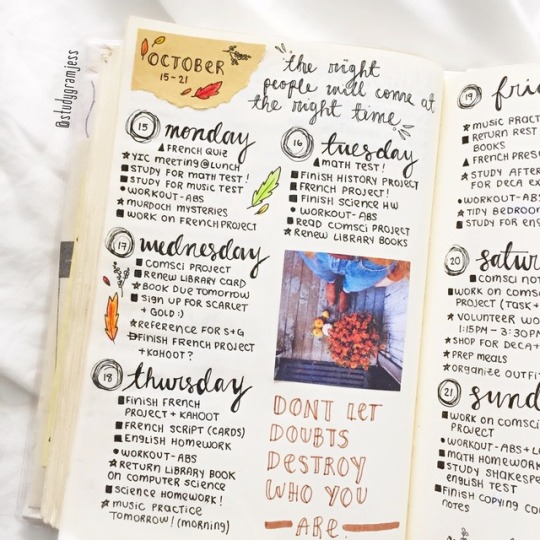 @studygramjess
OCTOBER
15-21
the right
people will come at
the right time
15 monday
FRENCH QUIZ
YIC MEETING@LUNCH
STUDY FOR MATH TEST!
STUDY FOR MUSIC TEST
WORKOUT-ABS
MURDOCH MYSTERIES
WORK ON FRENCH PROJECT
16 tuesday
MATH TEST!
FINISH HISTORY PROJECT
FRENCH PROJECT!
FINISH SCIENCE HW
WORKOUT-ABS
READ COMSCI PROJECT
RENEW LIBRARY BOOKS
17 wednesday
COMSCI PROJECT
RENEW LIBRARY CARD
BOOK DUE TOMORROW
SIGN UP FOR SCARLET
+ GOLD :)
REFERENCE FOR S+G
FINISH FRENCH PROJECT
+KAHOOT?
18 thursday
FINISH FRENCH
PROJECT + KAHOOT
FRENCH SCRIPT (CARDS)
ENGLISH HOMEWORK
WORKOUT-ABS
RETURN LIBRARY BOOK
ON COMPUTER SCIENCE
SCIENCE HOMEWORK!
MUSIC PRACTICE
TOMORROW! (MORNING)
DONT LET
DOUBTS
DESTROY
WHO YOU
ARE.
19 fri
MUSIC PRACT
RETURN REST
BOOKS
FRENCH PRES
STUDY AFTER
FOR DECA EX
WORKOUT-ABS
TIDY BEDROO
STUDY FOR EN
20 satur
COMSCI NOT
WORK ON COMS
PROJECT (TASK
VOLUNTEER WO
1:15PM - 3:30P
SHOP FOR DECA+
PREP MEALS
ORGANIZE OUTFI
21 sund
WORK ON COMSCI
PROJECT
WORKOUT-ABS+L
MATH HOMEWORK
STUDY SHAKESPE
ENGLISH TEST
FINISH COPYING CO
NOTES